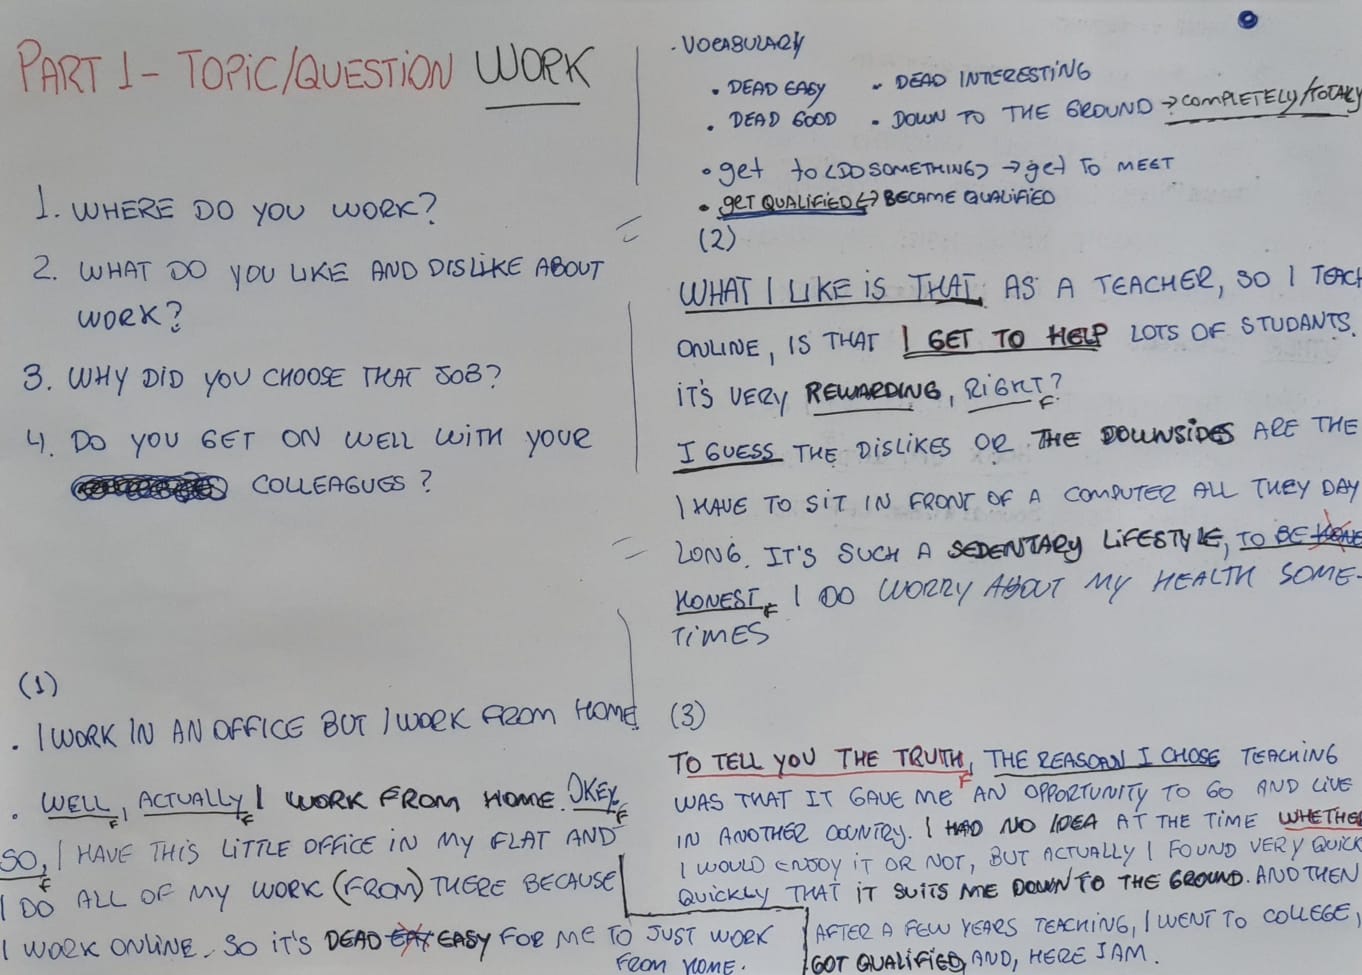 PART 1 - TOPIC/QUESTION WORK
1. WHERE DO YOU WORK?
2. WHAT DO YOU LIKE AND DISLIKE ABOUT
WORK?
3. WHY DID YOU CHOOSE THAT JOB?
4. DO YOU GET ON WELL WITH YOUR
COLLEAGUES?
(1)
• I WORK IN AN OFFICE BUT I WORK FROM HOME
• WELL, ACTUALLY I WORK FROM HOME. OKEY,
F F F
SO, I HAVE THIS LITTLE OFFICE IN MY FLAT AND
F
I DO ALL OF MY WORK (FROM) THERE BECAUSE
I WORK ONLINE. SO IT'S DEAD EASY FOR ME TO JUST WORK
FROM HOME.
• VOCABULARY
• DEAD EASY • DEAD INTERESTING
• DEAD GOOD • DOWN TO THE GROUND → COMPLETELY/TOTALY
• get to <DO SOMETHING> → get TO MEET
• geT QUALIFIED <-> BECAME QUALIFIED
(2)
WHAT I LIKE IS THAT, AS A TEACHER, SO I TEACH
ONLINE, IS THAT I GET TO HELP LOTS OF STUDANTS.
IT'S VERY REWARDING, RIGHT?
F
I GUESS THE DISLIKES OR THE DOWNSIDES ARE THE
I HAVE TO SIT IN FRONT OF A COMPUTER ALL THEY DAY
LONG. IT'S SUCH A SEDENTARY LIFESTYLE, TO BE
HONEST, I DO WORRY ABOUT MY HEALTH SOME-
F
TIMES
(3)
TO TELL YOU THE TRUTH, THE REASOAN I CHOSE TEACHING
F
WAS THAT IT GAVE ME AN OPPORTUNITY TO GO AND LIVE
IN ANOTHER COUNTRY. I HAD NO IDEA AT THE TIME WHETHER
I WOULD ENJOY IT OR NOT, BUT ACTUALLY I FOUND VERY QUICK
QUICKLY THAT IT SUITS ME DOWN TO THE GROUND. AND THEN
AFTER A FEW YEARS TEACHING, I WENT TO COLLEGE,
GOT QUALIFIED, AND, HERE I AM.